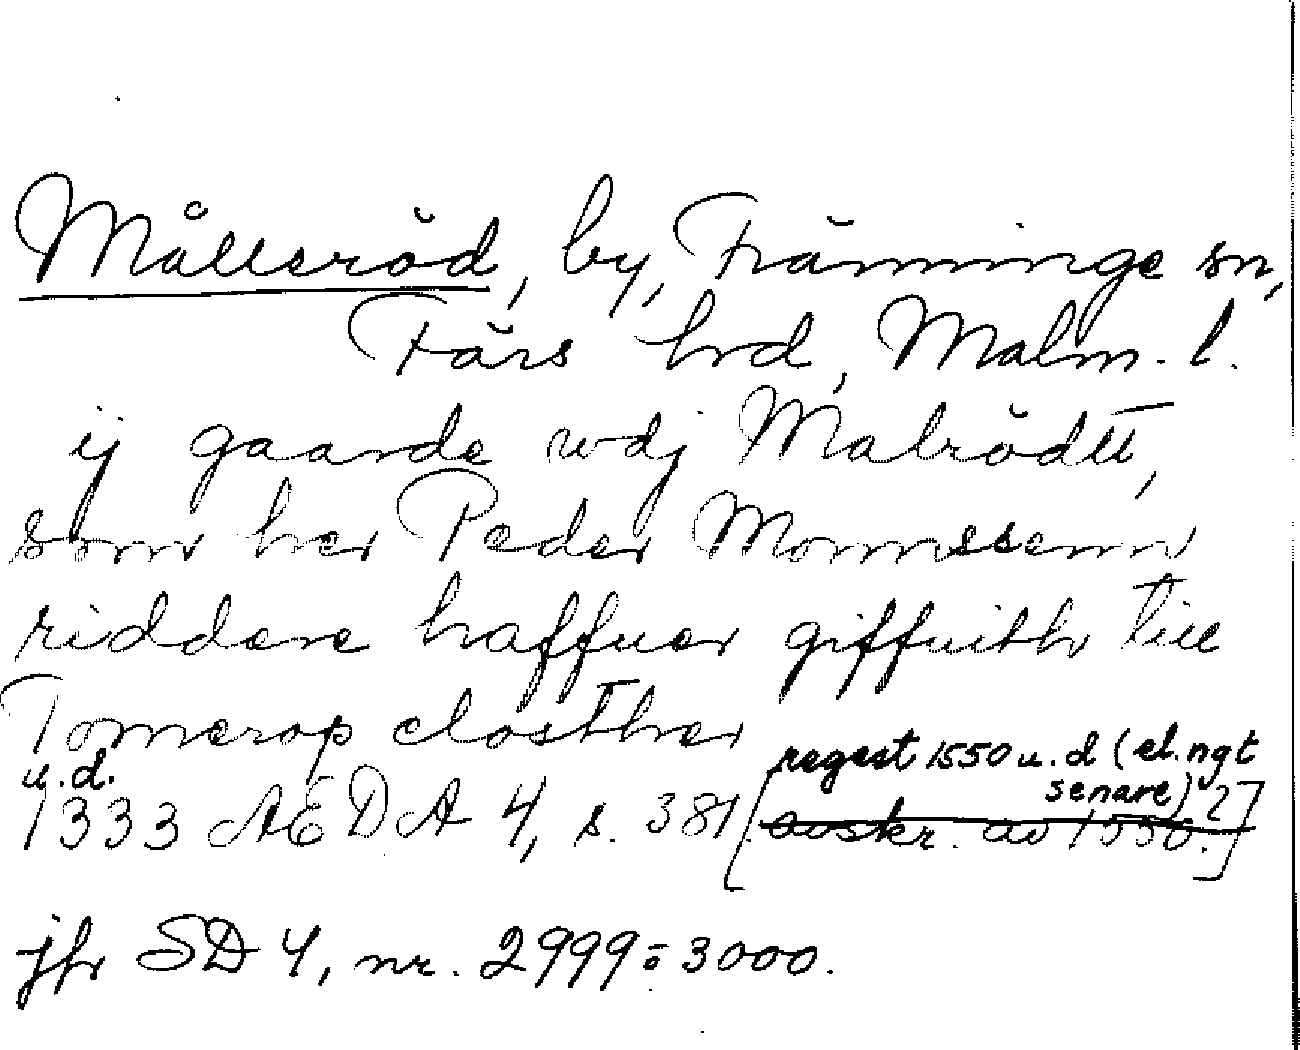 Målleröd, by, Fränninge sn,
Färs hrd, Malm. l.
ij gaarde wdj Malrödtt,
som her Peder Monnssenn
riddere haffuer giffuith till
Tomerop closther
u.d. regest 1550 u.d (el. ngt
senare)
1333 AEDA 4, s. 381 [avskr. av 1550.?]
jfr SD 4, nr. 2999-3000.